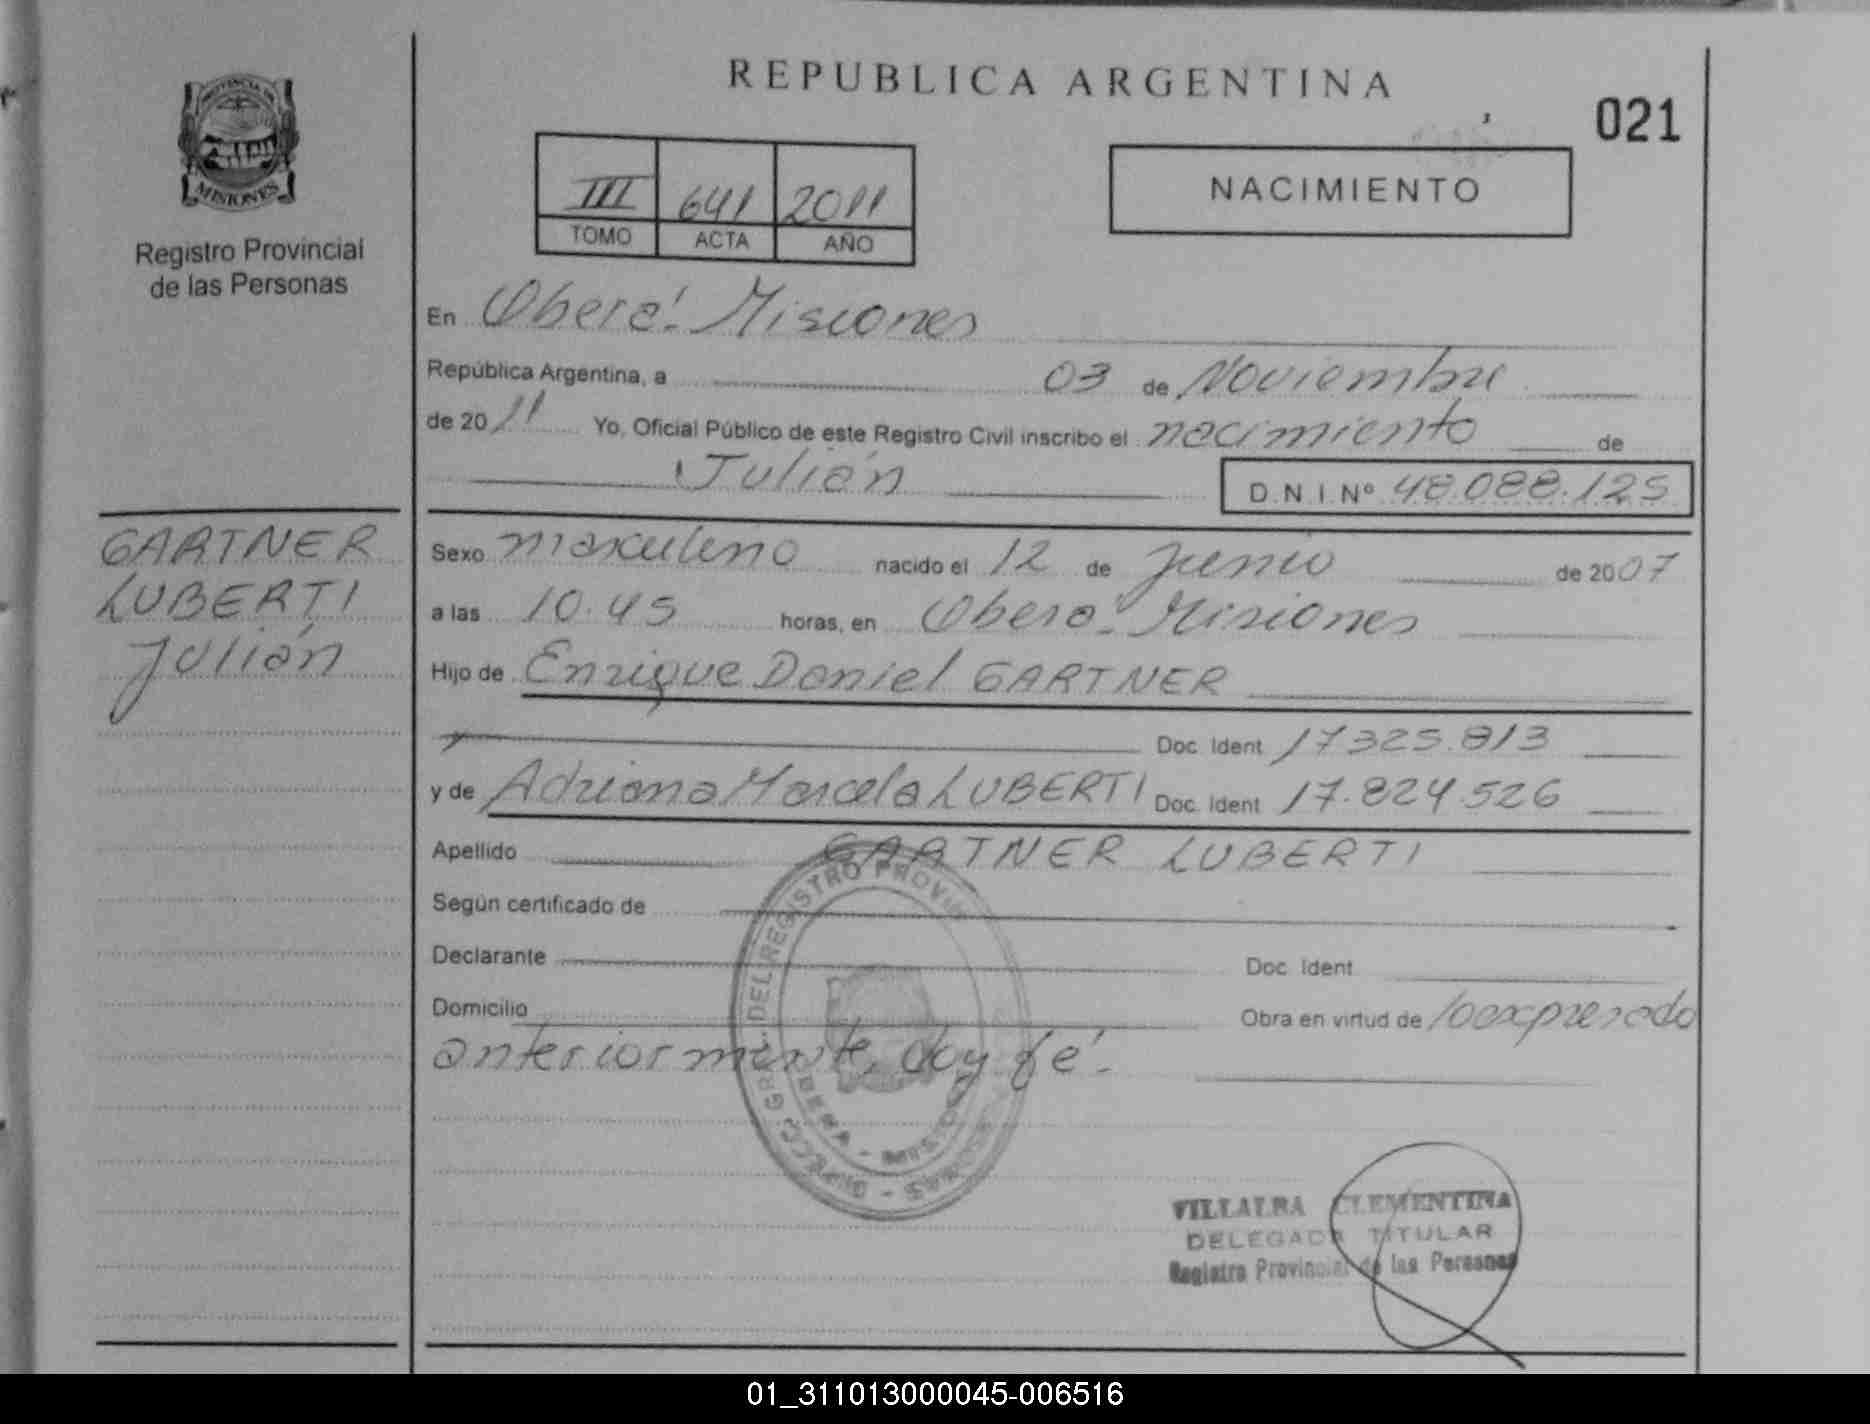 PROVINCIA DE
MISIONES
Registro Provincial
de las Personas
GARTNER
LUBERTI
Julián
REPUBLICA ARGENTINA
021
III 641 2011
TOMO ACTA AÑO
NACIMIENTO
En Oberá - Misiones
República Argentina, a 03 de Noviembre
de 2011 Yo, Oficial Público de este Registro Civil inscribo el nacimiento de
Julián D.N.I. Nº 48.088.125
Sexo masculino nacido el 12 de junio de 2007
a las 10.45 horas, en Oberá - Misiones
Hijo de Enrique Daniel GARTNER
Doc. Ident 17325.813
y de Adriana Marcela LUBERTI Doc. Ident 17.824.526
Apellido GARTNER LUBERTI
Según certificado de
Declarante Doc. Ident
Domicilio Obra en virtud de lo expresado
anteriormente, doy fé.
DEL REGISTRO PROVIN
OBERA - MISIONES
VILLALBA CLEMENTINA
DELEGADA TITULAR
Registro Provincial de las Personas
01_311013000045-006516